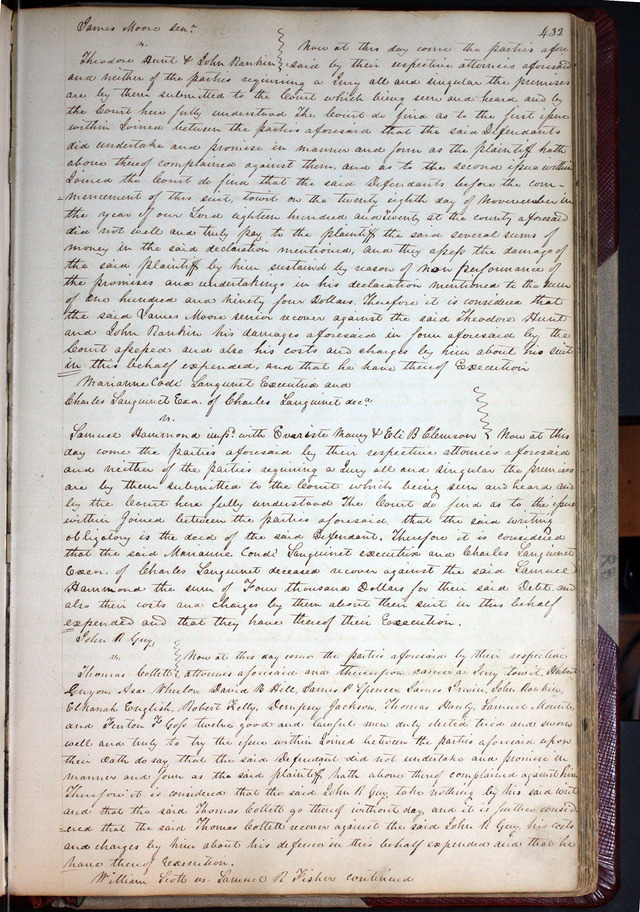 432
James Moore senr
vs.
Theodore Hunt & John Rankin Now at this day come the parties afore
said by their respective attornies aforesaid
and neither of the parties requiring a Jury all and singular the premises
are by them submitted to the Court which being seen and heard and by
the Court here fully understood The Court do find as to the first issue
within Joined between the parties aforesaid that the said Defendants
did undertake and promise in manner and form as the plaintiff hath
above thereof complained against them, and as to the second issue within
Joined the Court do find that the said Defendants before the com-
=mencement of this suit, towit on the twenty eighth day of November in
the year of our Lord eighteen hundred and twenty at the county aforesaid
did not well and truly pay to the plaintiff the said several sums of
money in the said declaration mentioned, and they assess the damage of
the said plaintiff by him sustained by reason of non performance of
the promises and undertakings in his declaration mentioned to the sum
of One hundred and ninety four Dollars. Therefore it is considered that
the said James Moore senior recover against the said Theodore Hunt
and John Rankin his damages aforesaid in form aforesaid by the
Court assessed and also his costs and charges by him about his suit
in this behalf expended, and that he have thereof Execution
Marianne Condi Sanguinet Executrix and
Charles Sanguinet Exa. of Charles Sanguinet decd
vs.
Samuel Hammond impd. with Evariste Maury & Eli B Clemson Now at this
day come the parties aforesaid by their respective attornies aforesaid
and neither of the parties requiring a Jury all and singular the premises
are by them submitted to the Court which being seen and heard and
by the Court here fully understood The Court do find as to the issue
within Joined between the parties aforesaid, that the said writing
obligatory is the deed of the said Defendant. Therefore it is considered
that the said Marianne Condi Sanguinet executrix and Charles Sanguinet
Exeor. of Charles Sanguinet deceased recover against the said Samuel
Hammond the sum of Four thousand Dollars for their said Debt and
also their costs and charges by them about their suit in this behalf
expended and that they have thereof their Execution.
John R Guy
vs.
Now at this day come the parties aforesaid by their respective
Thomas Collett attornies aforesaid and thereupon came a Jury towit,
Guyon, Asa Wheelon, David B Hill, James P Spencer, James Irwin, John Rankin,
Elkanah English, Robert Kelly, Dempsey Jackson, Thomas Hauty, Samuel
and Fenton F Goss twelve good and lawful men duly elected tried and sworn
well and truly to try the issue within Joined between the parties aforesaid upon
their Oath do say that the said Defendant did not undertake and promise in
manner and form as the said plaintiff hath above thereof complained against him
Therefore it is considered that the said John R Guy take nothing by his said writ
and that the said Thomas Collett go thereof without day, and it is further consid
=ered that the said Thomas Collett recover against the said John R Guy, his costs
and charges by him about his defence in this behalf expended and that he
have thereof Execution.
William Scott vs. Samuel R Fisher continued